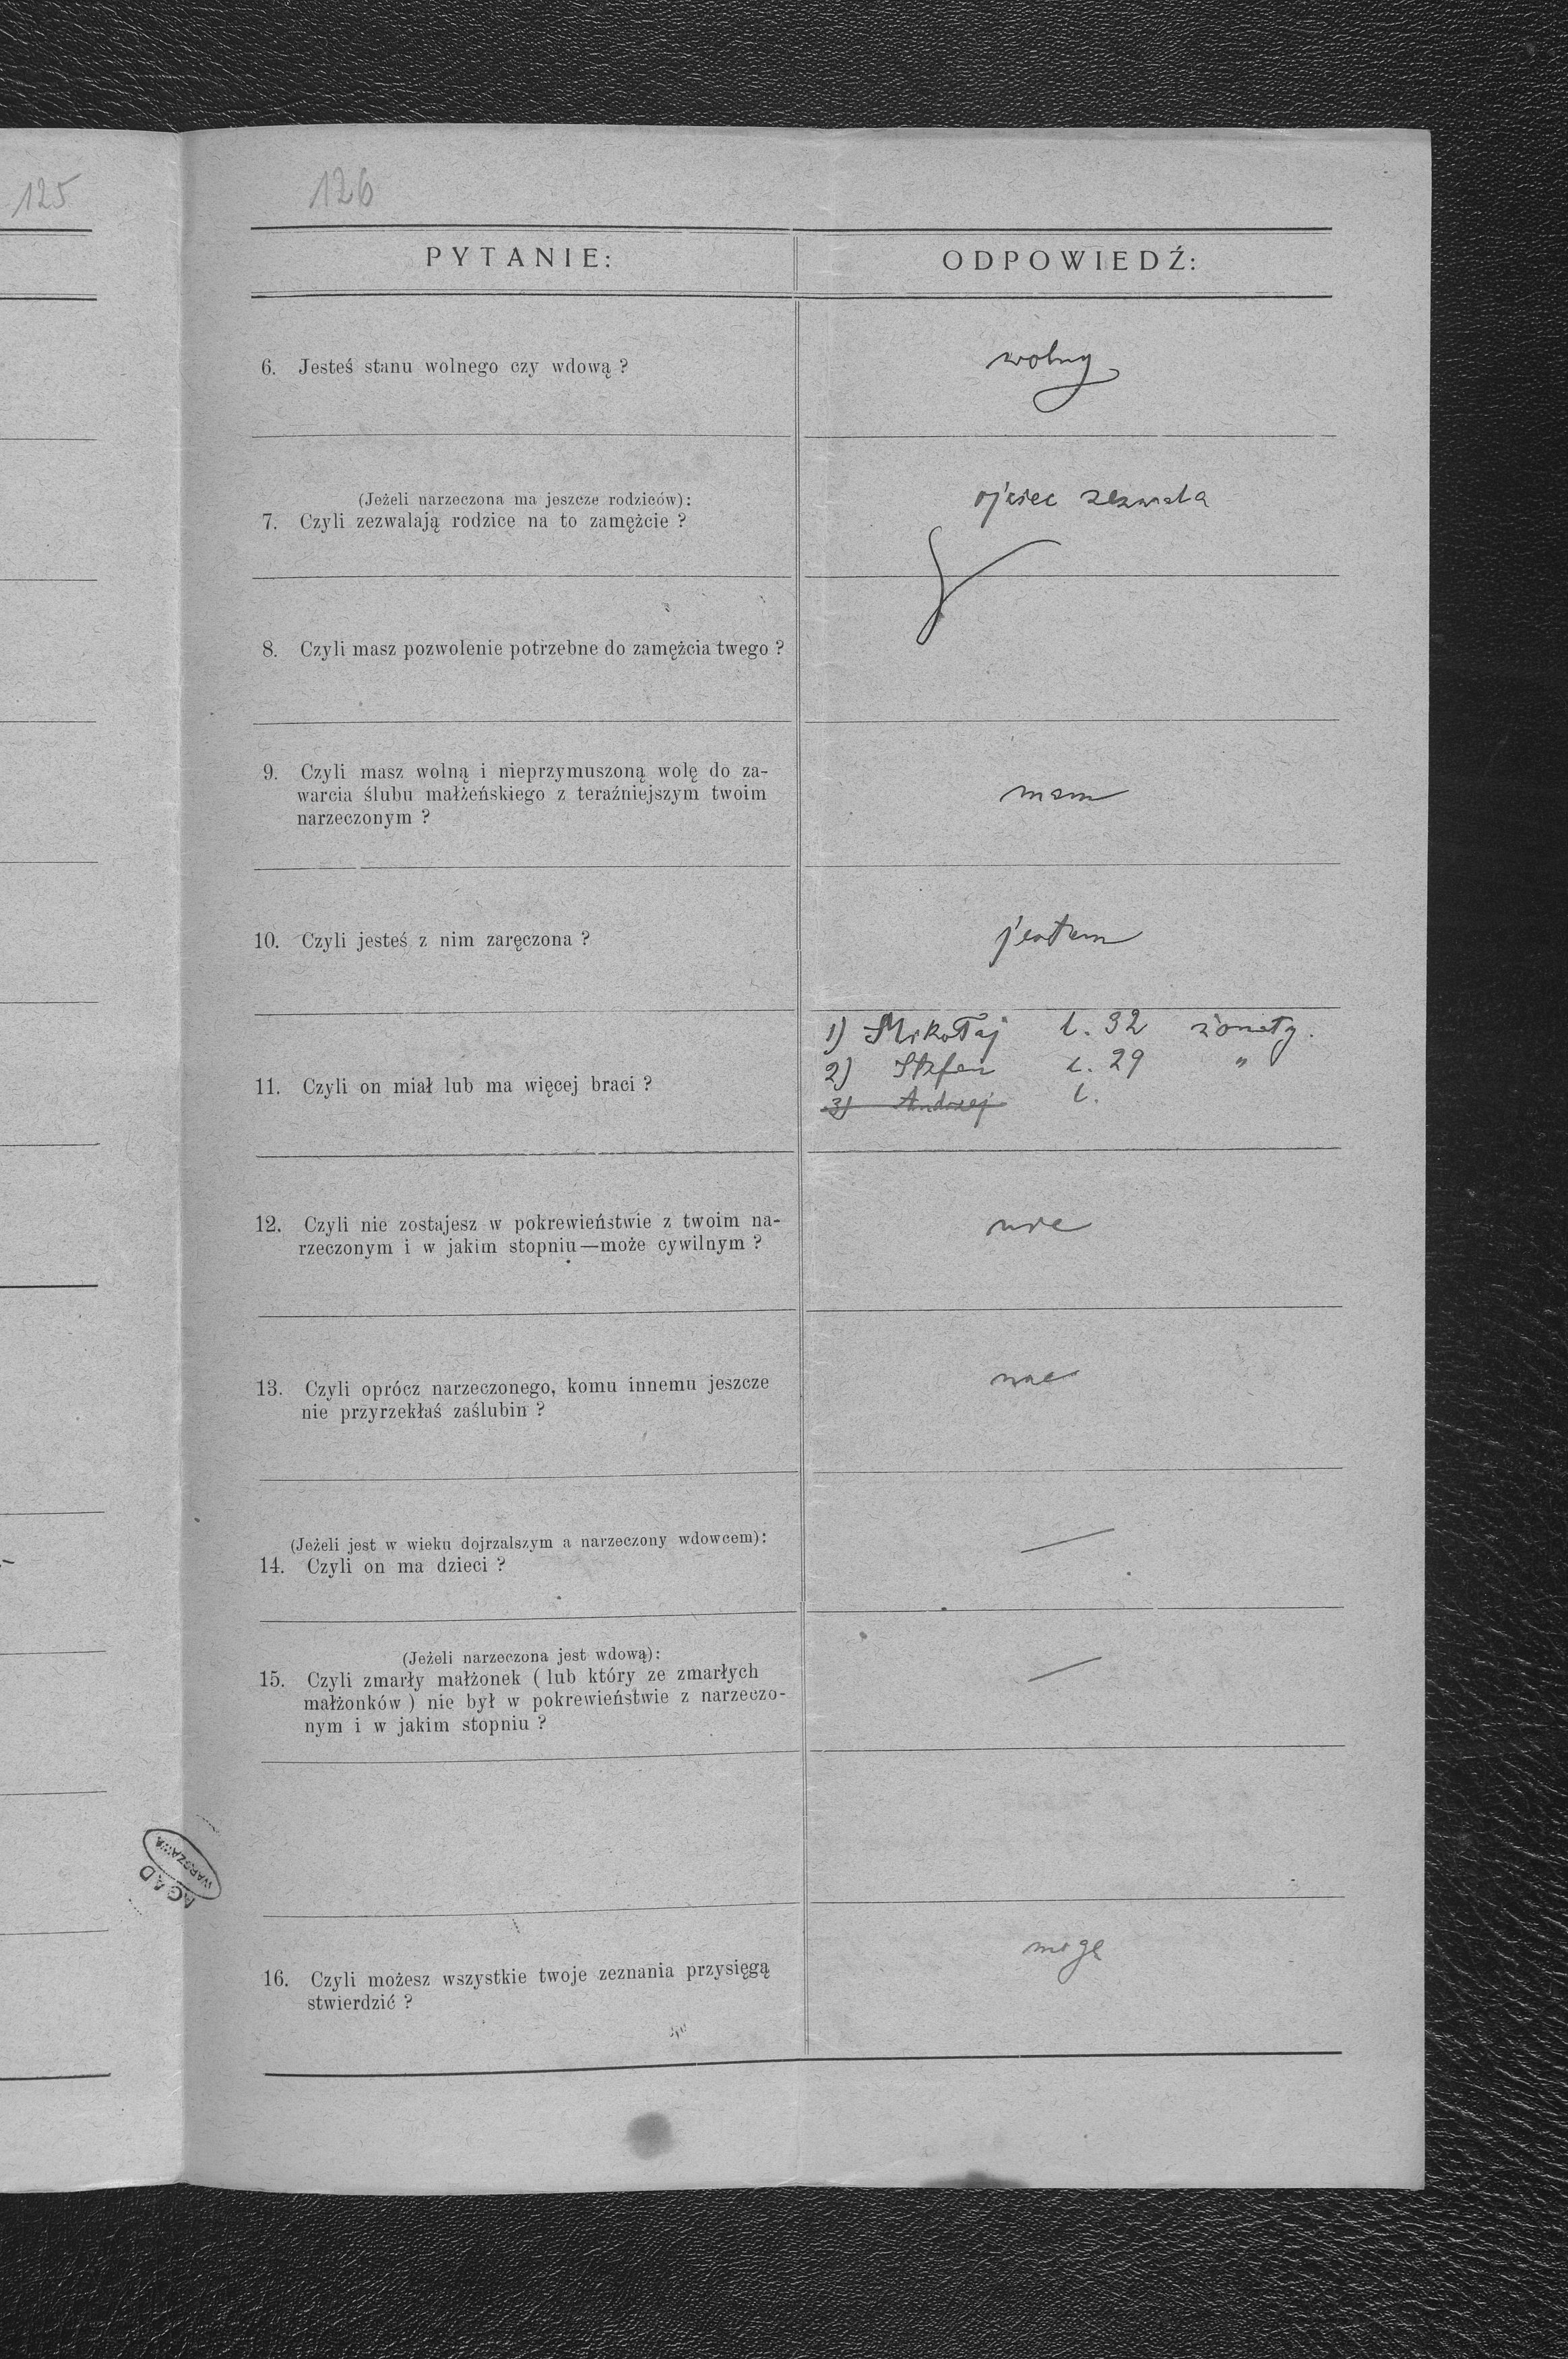 125
126
PYTANIE:
ODPOWIEDŹ:
6. Jesteś stanu wolnego czy wdową ?
wolny
(Jeżeli narzeczona ma jeszcze rodziców):
7. Czyli zezwalają rodzice na to zamężcie ?
ojciec zezwala
8. Czyli masz pozwolenie potrzebne do zamężcia twego ?
9. Czyli masz wolną i nieprzymuszoną wolę do za-
warcia ślubu małżeńskiego z teraźniejszym twoim
narzeczonym ?
mam
10. Czyli jesteś z nim zaręczona ?
jestem
11. Czyli on miał lub ma więcej braci ?
1) Mikołaj l. 32 żonaty.
2) Stefan l. 29 "
3) Andrzej l.
12. Czyli nie zostajesz w pokrewieństwie z twoim na-
rzeczonym i w jakim stopniu—może cywilnym ?
nie
13. Czyli oprócz narzeczonego, komu innemu jeszcze
nie przyrzekłaś zaślubin ?
nie
(Jeżeli jest w wieku dojrzalszym a narzeczony wdowcem):
14. Czyli on ma dzieci ?
—
(Jeżeli narzeczona jest wdową):
15. Czyli zmarły małżonek ( lub który ze zmarłych
małżonków ) nie był w pokrewieństwie z narzeczo-
nym i w jakim stopniu ?
—
16. Czyli możesz wszystkie twoje zeznania przysięgą
stwierdzić ?
mogę
AGAD
WARSZAWA